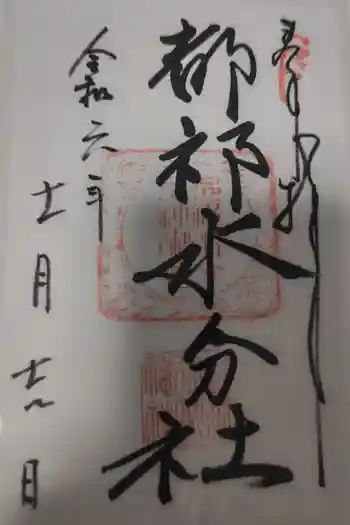 奉拝
都祁水分社
令和六年
十一月
十六日